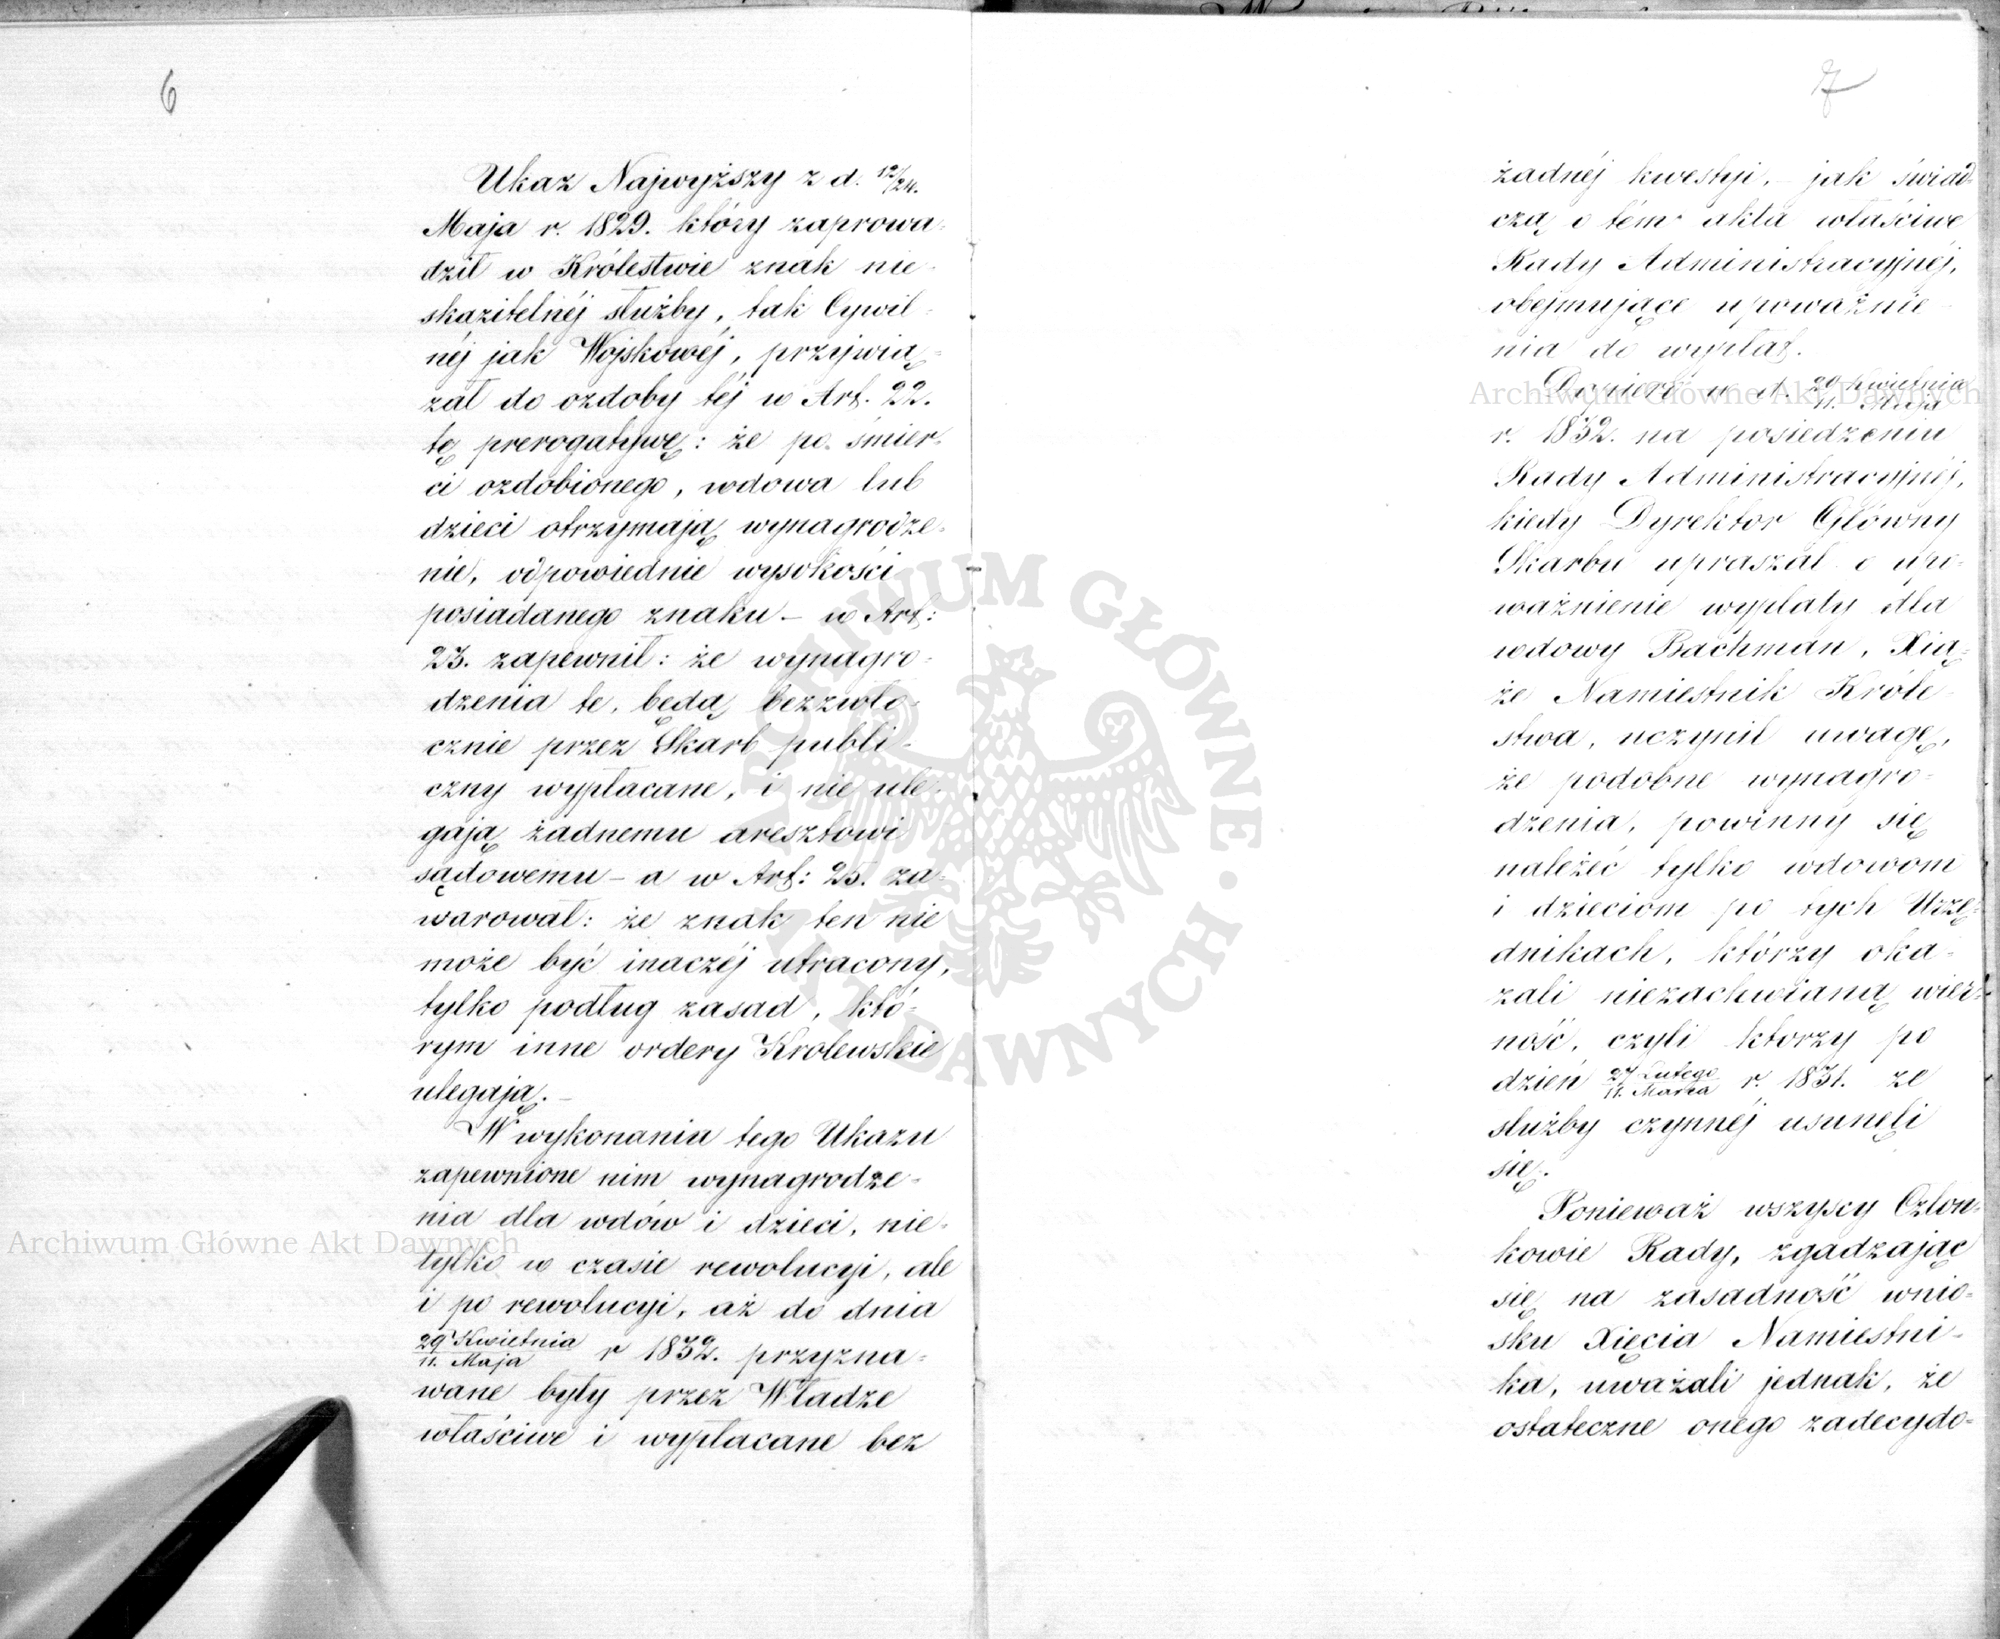 6
Ukaz Najwyższy z d. 12/24.
Maja r. 1829. który zaprowa-
dził w Królestwie znak nie-
skazitelnéj służby, tak Cywil-
néj jak Wojskowéj, przywią-
zał do ozdoby téj w Art. 22.
tę prerogatywę: że po śmier-
ci ozdobionego, wdowa lub
dzieci otrzymają wynagrodze-
nie, odpowiednie wysokości
posiadanego znaku – w Art:
23. zapewnił: że wynagro-
dzenia te, będą bezzwło-
cznie przez Skarb publi-
czny wypłacane, i nie ule-
gają żadnemu aresztowi
sądowemu – a w Art: 25. za-
warował: że znak ten nie
może być inaczéj utracony,
tylko podług zasad, któ-
rym inne ordery Królewskie
ulegają. –
W wykonania tego Ukazu
zapewnione nim wynagrodze-
nia dla wdów i dzieci, nie-
tylko w czasie rewolucyi, ale
i po rewolucyi, aż do dnia
29 Kwietnia/11. Maja r 1832. przyzna-
wane były przez Władze
właściwe i wypłacane bez
7
żadnéj kwestyi, – jak świad-
czą o tém akta właściwe
Rady Administracyjnéj,
obejmujące upoważnie-
nia do wypłat.
Dopiero w d. 29 Kwietnia/11. Maja
r. 1832. na posiedzeniu
Rady Administracyjnéj,
kiedy Dyrektor Główny
Skarbu upraszał o upo-
ważnienie wypłaty dla
wdowy Bachman, Xią-
że Namiestnik Króle-
stwa, uczynił uwagę,
że podobne wynagro-
dzenia, powinny się
należeć tylko wdowom
i dzieciom po tych Urzę-
dnikach, którzy oka-
zali niezachwianą wier-
ność, czyli ktorzy po
dzień 27 Lutego/11. Marca r. 1831. ze
służby czynnéj usunęli
się.
Ponieważ wszyscy Człon-
kowie Rady, zgadzając
się na zasadność wnio-
sku Xięcia Namiestni-
ka, uważali jednak, że
ostateczne onego zadecydo-
Archiwum Główne Akt Dawnych
Archiwum Główne Akt Dawnych
ARCHIWUM GŁÓWNE · AKT DAWNYCH ·